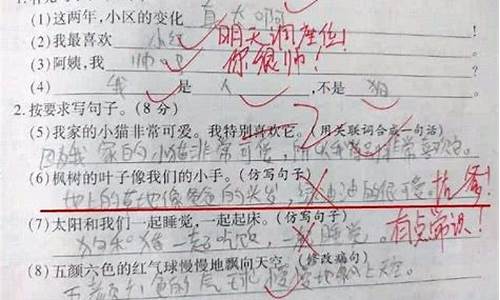 (1)这两年,小区的变化真大啊
(2)我最喜欢 小红 明天调座位!
(3)阿姨,我 帅吧 你很帅!
(4) 我 是 人 ,不是 狗
2.按要求写句子。(8分)
(5)我家的小猫非常可爱。我特别喜欢它。(用关联词合成一句话)
因为我家的小猫非常可爱,所以我特别非常喜欢它。
(6)枫树的叶子像我们的小手。(仿写句子)
地上的草地像爸爸的头发,绿油油的很可爱。 找爹!
(7)太阳和我们一起睡觉,一起起床。(仿写句子)
狗和猪一起吃饭,一起睡觉。 有点常识!
(8)五颜六色的红气球慢慢地飘向天空。(修改病句)
五颜六色的气球慢慢地飘上天空。